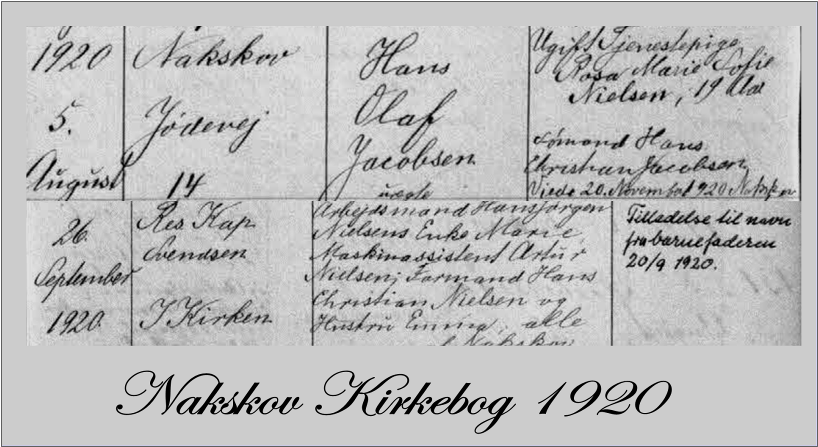 1920
5.
August
Nakskov
Jødevej
14
Hans
Olaf
Jacobsen
uægte
Ugift Tjenestepige
Rosa Marie Sofie
Nielsen, 19 Aar
Sømand Hans
Christian Jacobsen
Viede 20. November 920 Nakskov
26.
September
1920.
Res Kap
Svendsen
I Kirken
Arbejdsmand Hans Jørgen
Nielsens Enke Marie,
Maskinassistent Artur
Nielsen, Formand Hans
Christian Nielsen og
Hustru Emma, alle
Nakskov
Tilladelse til navn
fra barnefaderen
20/9 1920.
Nakskov Kirkebog 1920